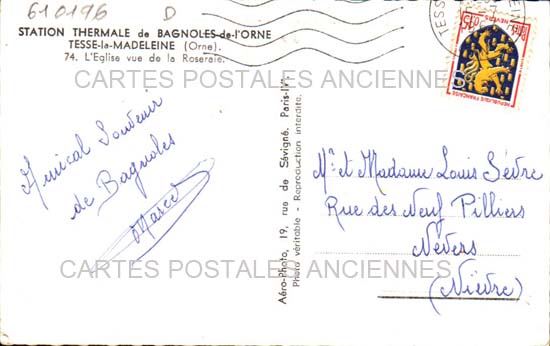 610196 D
STATION THERMALE de BAGNOLES-de-l'ORNE
TESSE-la-MADELEINE (Orne).
74. L'Eglise vue de la Roseraie.
CARTES POSTALES ANCIENNES
Amical Souvenir
de Bagnoles
Marcel
Aéro-Photo, 19, rue de Sévigné, Paris-IVe
Photo véritable - Reproduction interdite.
TESSE
NEVERS
REPUBLIQUE FRANÇAISE
0,15
Mr et Madame Louis Sèvre
Rue des Neuf Pilliers
Nevers
(Nièvre)
CARTES POSTALES ANCIENNES